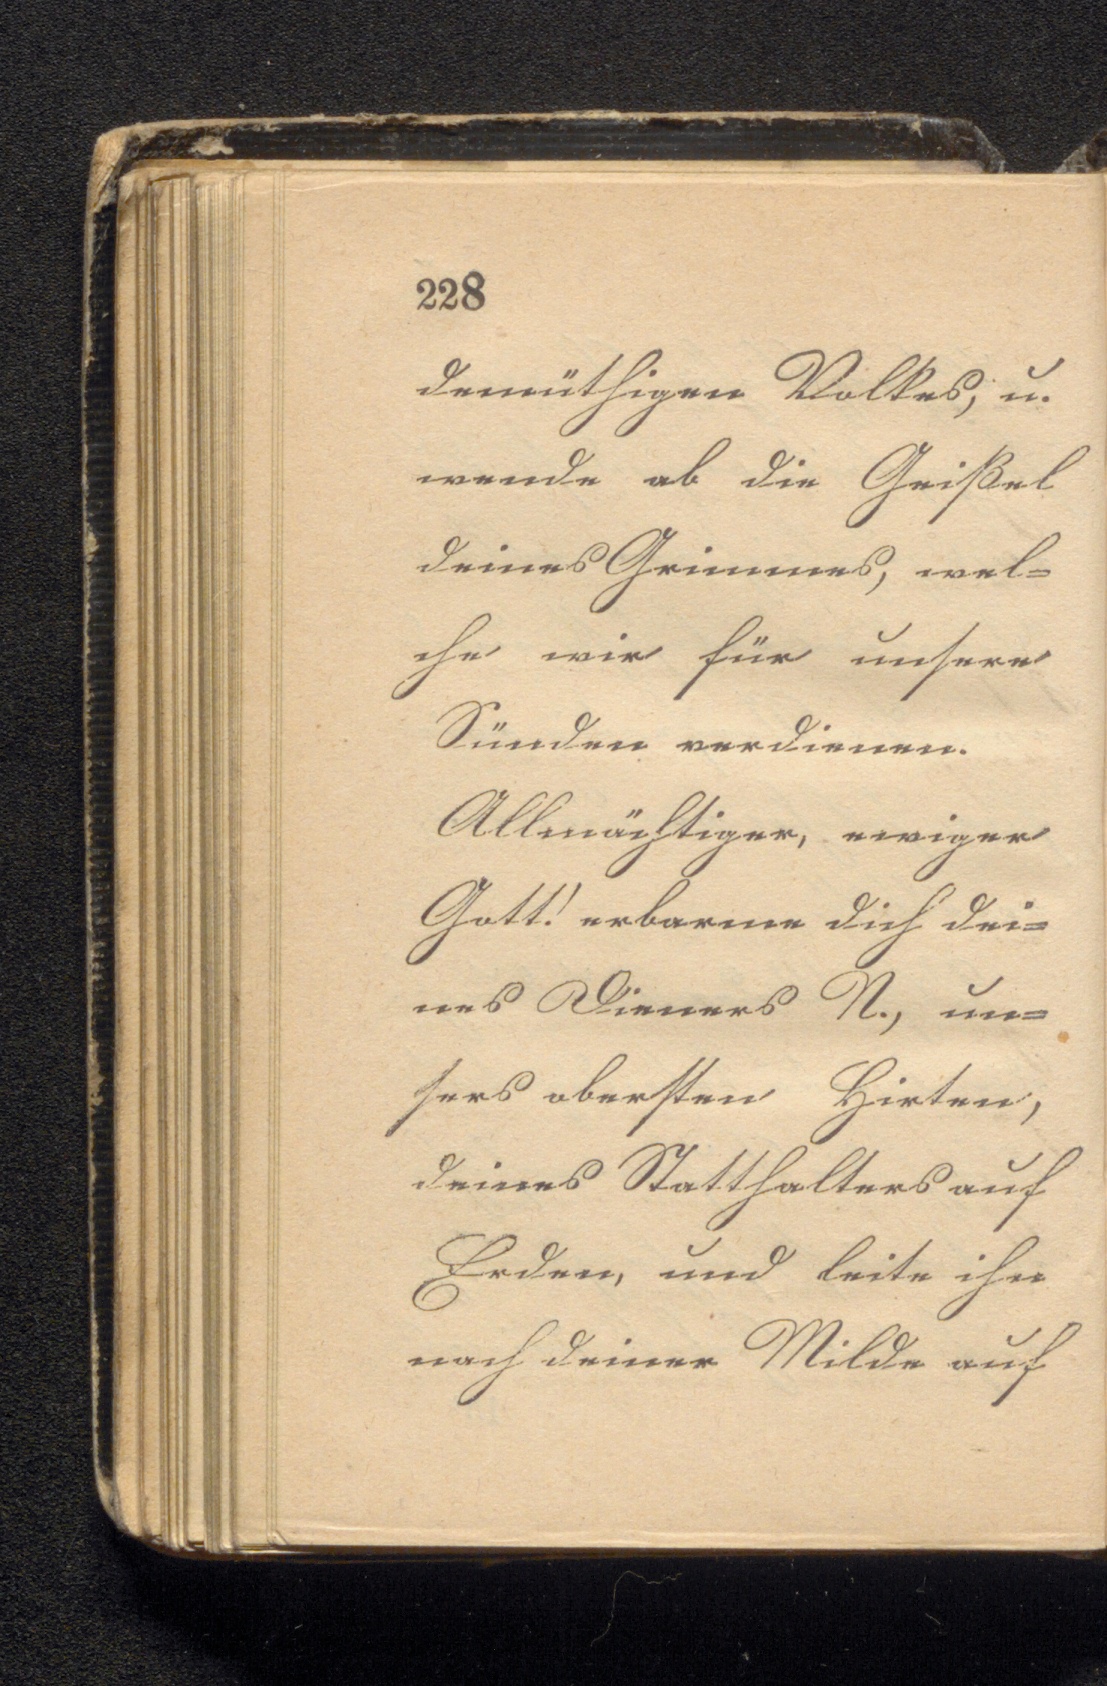 228
demüthigen Volkes, u.
wende ab die Geißel
deines Grimmes, wel=
che wir für unsere
Sünden verdienen.
Allmächtiger, ewiger
Gott! erbarme dich dei=
nes Dieners N., un=
sers obersten Hirten,
deines Statthalters auf
Erden, und leite ihn
nach deiner Milde auf